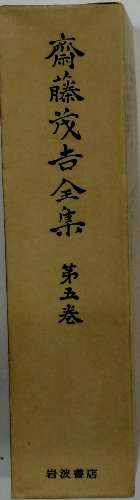 齋藤茂吉全集
第五巻
岩波書店